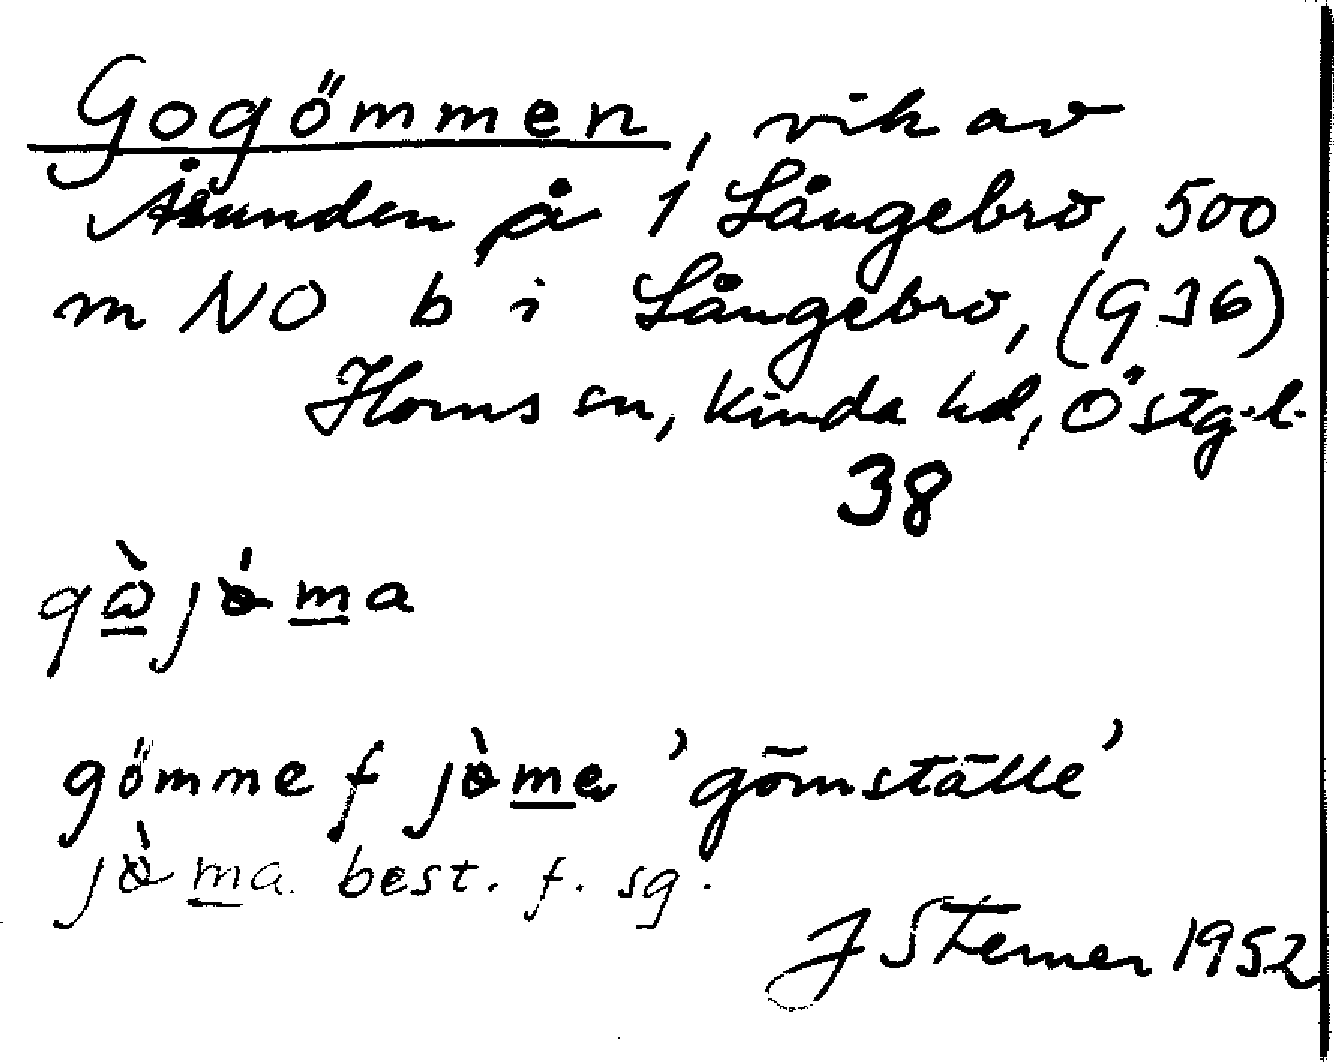 Gogömmen, vik av
Åsunden på 1 Långebro, 500
m NO b i Långebro, (9J6)
Horns sn, Kinda hd, Östg.l.
38
gömme f 'gömställe'
best. f. sg.
J Sterner 1952